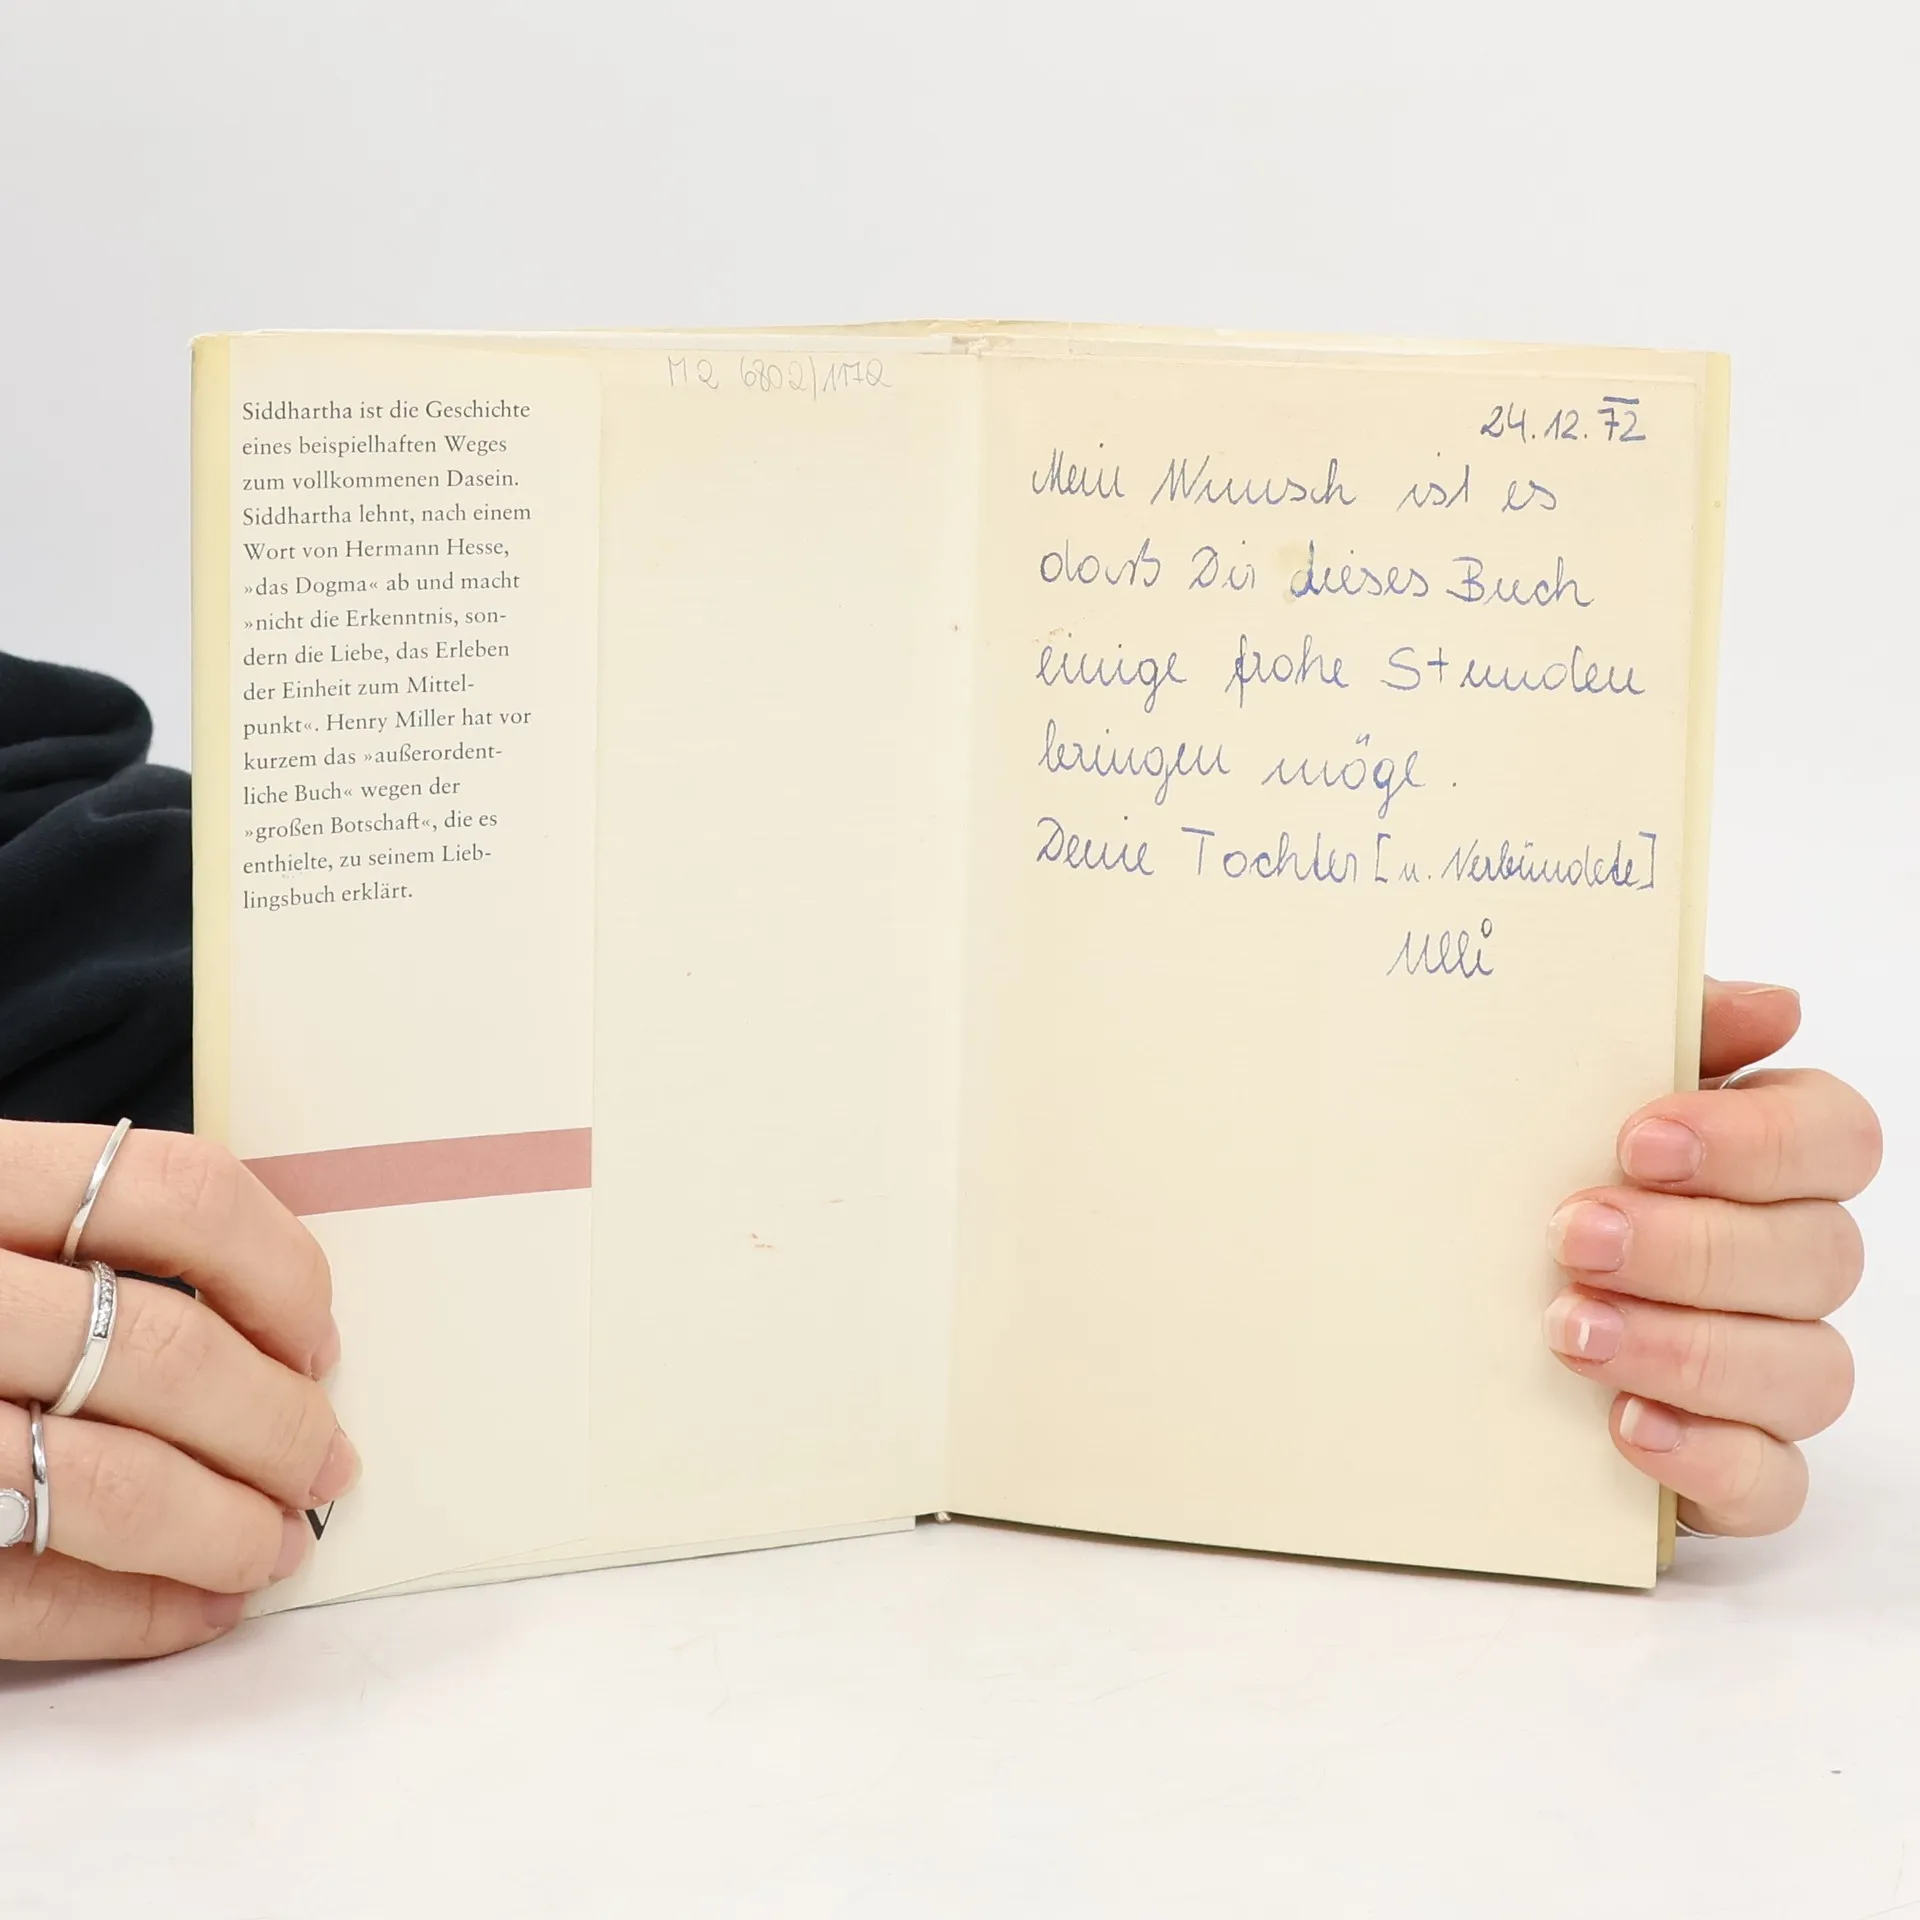 Siddhartha ist die Geschichte
eines beispielhaften Weges
zum vollkommenen Dasein.
Siddhartha lehnt, nach einem
Wort von Hermann Hesse,
»das Dogma« ab und macht
»nicht die Erkenntnis, son-
dern die Liebe, das Erleben
der Einheit zum Mittel-
punkt«. Henry Miller hat vor
kurzem das »außerordent-
liche Buch« wegen der
»großen Botschaft«, die es
enthielte, zu seinem Lieb-
lingsbuch erklärt.
M2 6802/1172
24.12.72
Mein Wunsch ist es
daß Dir dieses Buch
einige frohe Stunden
bringen möge.
Deine Tochter [u. Verbündete]
Ulli